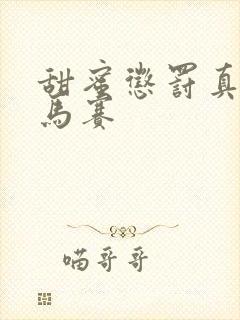 甜蜜懲罰真
馬賽
喵哥哥